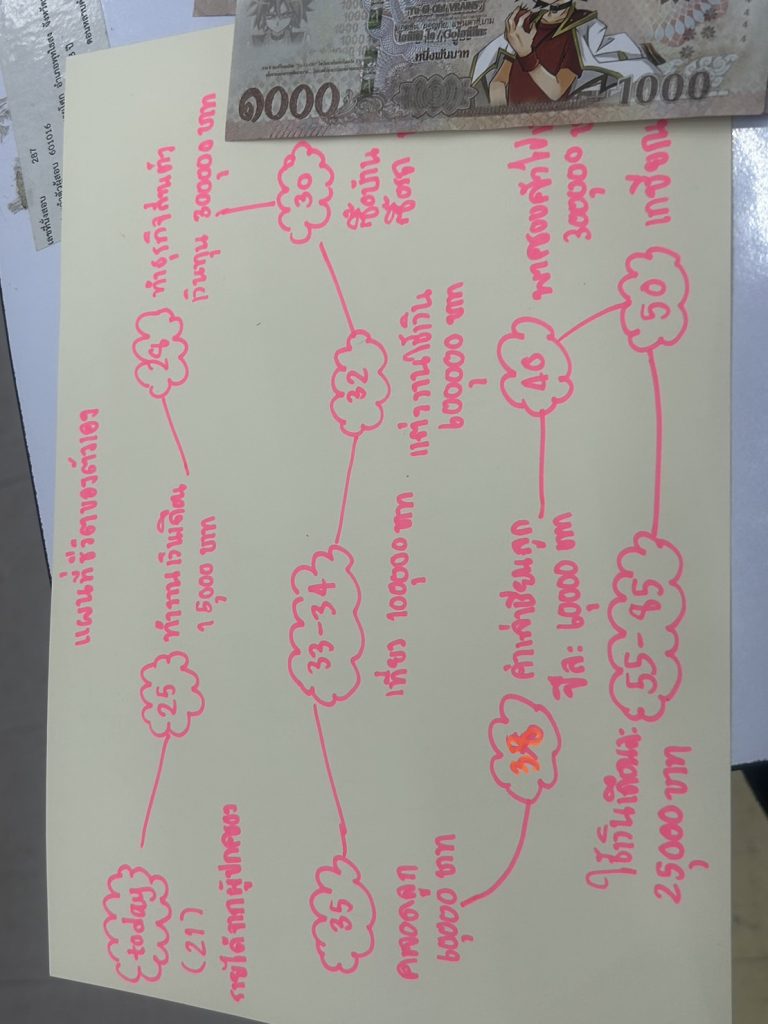 แผนที่ชีวิตของตัวเอง
today
(21)
รายได้จากผู้ปกครอง
25
ทำงานเงินเดือน
15,000 บาท
29
ทำธุรกิจส่วนตัว
เงินทุน 300,000 บาท
30
ซื้อบ้าน
ซื้อรถ
32
แต่งงานใช้เงิน
600,000 บาท
33-34
เที่ยว 100,000 บาท
35
คลอดลูก
60,000 บาท
38
ค่าเทอมเรียนลูก
ปีละ 60,000 บาท
40
พาครอบครัวไป
300,000
50
เกษียณ
55-85
ใช้เงินเดือนละ
25,000 บาท
๑๐๐๐
1000
หนึ่งพันบาท
287
601016